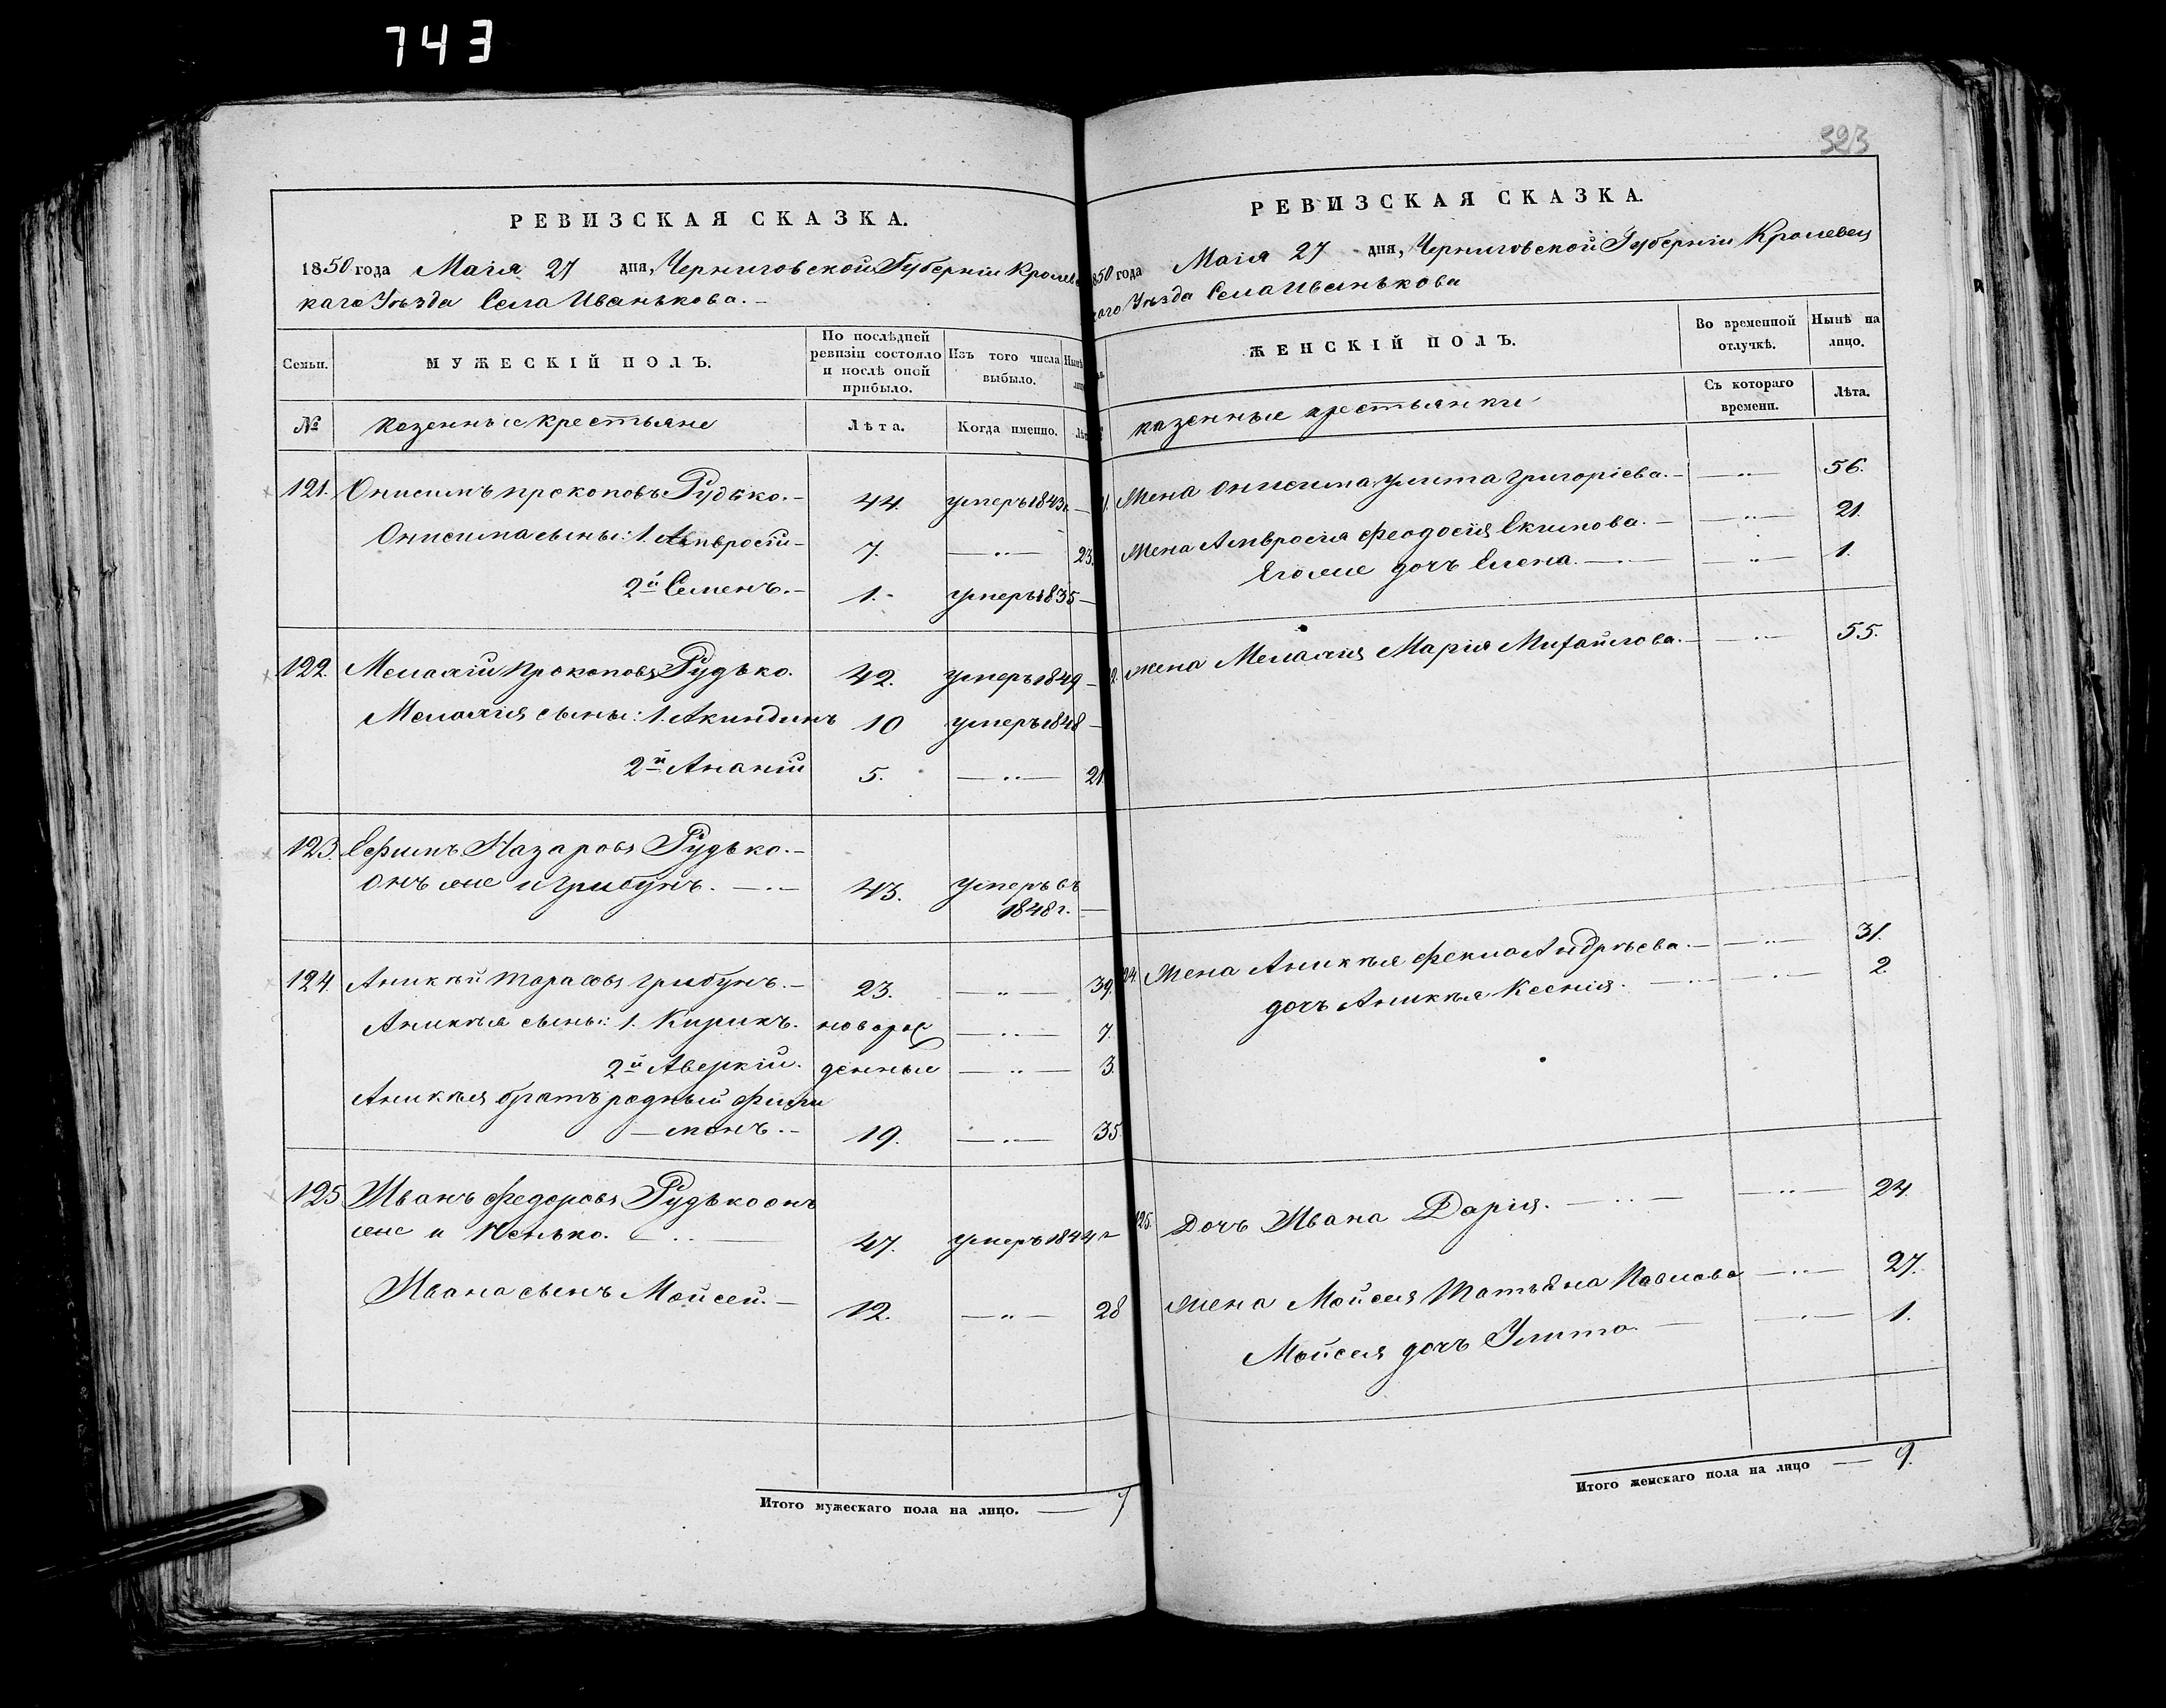 743
323
РЕВИЗСКАЯ СКАЗКА.
1850 года Маія 27 дня, Черниговской Губерніи Кролевец
каго Уѣзда Села Иванькова.
Семьи.
МУЖЕСКІЙ ПОЛЪ.
По послѣдней ревизіи состояло и послѣ оной прибыло.
Изъ того числа выбыло.
Нынѣ
№
Казенные крестьяне
Лѣта.
Когда именно.
121. Онисимъ Прокоповъ Рудько.- 44. умеръ 1843г. —
Онисима сыны: 1. Амвросій - 7. — „ — 23.
2й Семенъ.- 1.- умеръ 1835 —
122. Мелахій Прокоповъ Рудько. 42. умеръ 1849 —
Мелахія сыны: 1. Акиндинъ 10 умеръ 1848 —
2й Ананій 5. — „ — 21
123. Ефимъ Назаровъ Рудько.-
онъ же и Грибунъ. 43. умеръ въ
1848 г. —
124. Аникѣй Тарасовъ Грибунъ.- 23. — „ — 39.
Аникѣя сыны: 1. Кирикъ. новорож — „ — 7.
2й Аверкій. денные — „ — 3.
Аникѣя братъ родный Фили
— монъ.- 19. — „ — 35.
125 Иванъ Федоровъ Рудько онъ
же и 47. умеръ 1844 г
Ивана сынъ Мойсей.- 12. — „ — 28
Итого мужескаго пола на лицо. — 7
РЕВИЗСКАЯ СКАЗКА.
850 года Маія 27 дня, Черниговской Губерніи Кролевец
каго Уѣзда Села Иванькова
ЖЕНСКІЙ ПОЛЪ.
Во временной отлучкѣ.
Нынѣ на лицо.
казенные крестьянки
Съ котораго времени.
Лѣта.
Жена Онисима Улита Григоріева.- — „ — 56.
Жена Амвросія Феодосія Екимова.- — „ — 21.
Его же дочъ Елена. — „ — 1.
жена Мелахія Марія Михайлова.- — „ — 55.
24. Жена Аникѣя Фекла Андрѣева.- — „ — 31.
дочъ Аникѣя Ксенія. — „ — 2.
125. Дочъ Ивана Дарія. — „ — 24.
жена Мойсея Татьяна Павлова — „ — 27.
Мойсея дочъ Улита. — „ — 1.
Итого женскаго пола на лицо — 9.